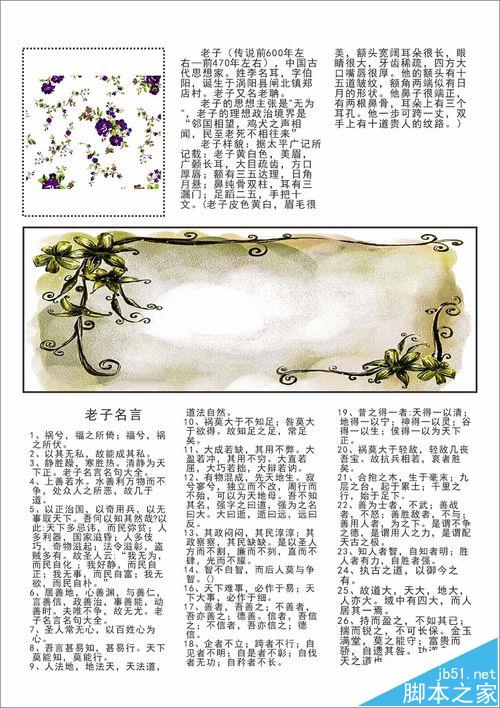 老子(传说前600年左
右—前470年左右),中国古
代思想家。姓李名耳,字伯
阳,诞生于涡阳县闸北镇郑
店村。老子又名老聃。
老子的思想主张是"无为
",老子的理想政治境界是
"邻国相望,鸡犬之声相
闻,民至老死不相往来"
老子样貌:据太平广记所
记载:老子黄白色,美眉,
广颡长耳,大目疏齿,方口
厚唇;额有三五达理,日角
月悬;鼻纯骨双柱,耳有三
漏门;足蹈二五,手把十
文。(老子皮色黄白,眉毛很
美,额头宽阔耳朵很长,眼
睛很大,牙齿稀疏,四方大
口嘴唇很厚。他的额头有十
五道皱纹,额角两端似有日
月的形状。他鼻子很端正,
有两根鼻骨,耳朵上有三个
耳孔。他一步可跨一丈,双
手上有十道贵人的纹路。)
老子名言
1、祸兮,福之所倚;福兮,祸
之所伏。
2、以其无私,故能成其私。
3、静胜躁,寒胜热。清静为天
下正。老子名言名句大全。
4、上善若水。水善利万物而不
争,处众人之所恶,故几于
道。
5、以正治国,以奇用兵,以无
事取天下。吾何以知其然哉?以
此:天下多忌讳,而民弥贫;人
多利器,国家滋昏;人多伎
巧,奇物滋起;法令滋彰,盗
贼多有。故圣人云:"我无为,
而民自化 ;我好静,而民自
正;我无事,而民自富;我无
欲,而民自朴。"
6、居善地,心善渊,与善仁,
言善信,政善治,事善能,动
善时。夫唯不争,故无尤。老
子名言名句大全。
7、圣人常无心,以百姓心为
心。
8、吾言甚易知,甚易行。天下
莫能知,莫能行。
9、人法地,地法天,天法道,
道法自然。
10、祸莫大于不知足;咎莫大
于欲得。故知足之足,常足
矣。
11、大成若缺,其用不弊。大
盈若冲,其用不穷。大直若
屈,大巧若拙,大辩若讷。
12、有物混成,先天地生。寂
兮寥兮,独立而不改,周行而
不殆,可以为天地母。吾不知
其名,强字之曰道,强为之名
曰大。大曰逝,逝曰远,远曰
反。
13、其政闷闷,其民淳淳;其
政察察,其民缺缺。是以圣人
方而不割,廉而不刿,直而不
肆,光而不耀。
14、智不自智,而后人莫与争
智。()
16、天下难事,必作于易;天
下大事,必作于细。
17、善者,吾善之;不善者,
吾亦善之;德善。信者,吾信
之;不信者,吾亦信之;德
信。
18、企者不立;跨者不行;自
见者不明;自是者不彰;自伐
者无功;自矜者不长。
19、昔之得一者:天得一以清;
地得一以宁;神得一以灵;谷
得一以生;侯得一以为天下
正。
20、祸莫大于轻敌,轻敌几丧
吾宝。故抗兵相若,哀者胜
矣。
21、合抱之木,生于毫末;九
层之台,起于累土;千里之
行,始于足下。
22、善为士者,不武;善战
者,不怒;善胜敌者,不与;
善用人者,为之下。是谓不争
之德,是谓用人之力,是谓配
天古之极。
23、知人者智,自知者明;胜
人者有力,自胜者强。
24、执古之道,以御今之
有。
25、故道大,天大,地大,
人亦大。域中有四大,而人
居其一焉。
26、持而盈之,不如其已;
揣而锐之,不可长保。金玉
满堂,莫之能守;富贵而
骄,自遗其咎。功遂
天之道也
jb51.net
脚本之家